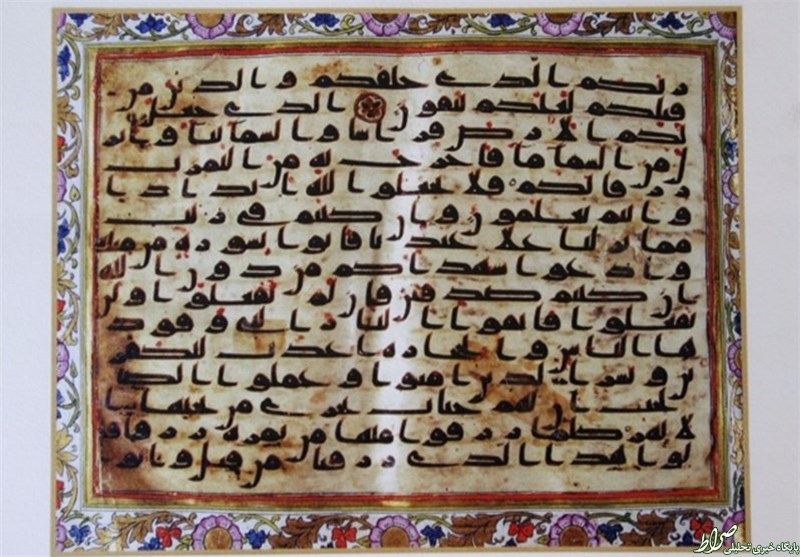 ربكم الذي خلقكم والذين من
قبلكم لعلكم تتقون الذي جعل
لكم الارض فرشا والسما بنا وانز
ل من السما ما فاخرج به من الثمرت
رزقا لكم فلا تجعلوا لله اندادا
وانتم تعلمون وان كنتم في ريب
مما نزلنا على عبدنا فاتوا بسورة من مثله
وادعوا شهداكم من دون الله
ان كنتم صدقين فان لم تفعلوا ولن
تفعلوا فاتقوا النار التي وقود
ها الناس والحجارة اعدت للكفر
ين وبشر الذين امنوا وعملوا الصا
لحت ان لهم جنت تجري من تحتها ا
لانهر كلما رزقوا منها من ثمرة رزقا قا
لوا هذا الذي رزقنا من قبل واتوا
صراط
پایگاه خبری تحلیلی